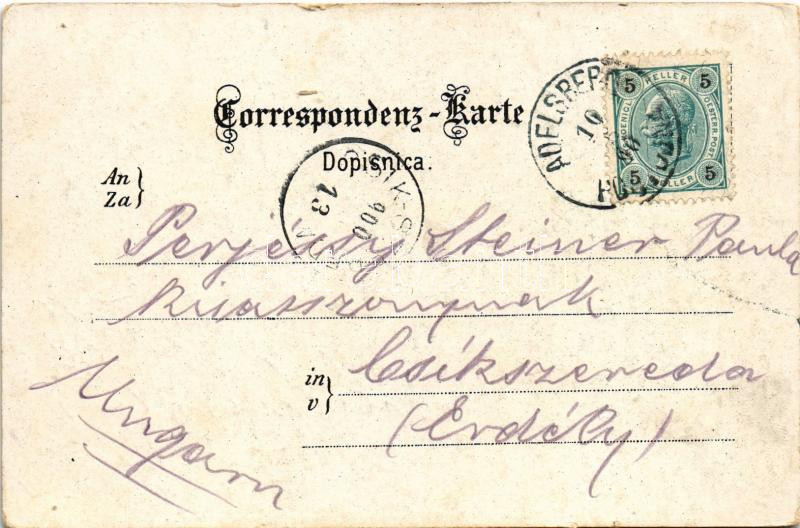 Correspondenz-Karte
Dopisnica.
ADELSBERG
10
5 HELLER 5
KAISERL. KOENIGL. OESTERR. POST.
5 HELLER 5
900
13
An
Za
Perjéssy Steiner Paula
kisasszonynak
in
v
Csíkszereda
(Erdély)
Ungarn